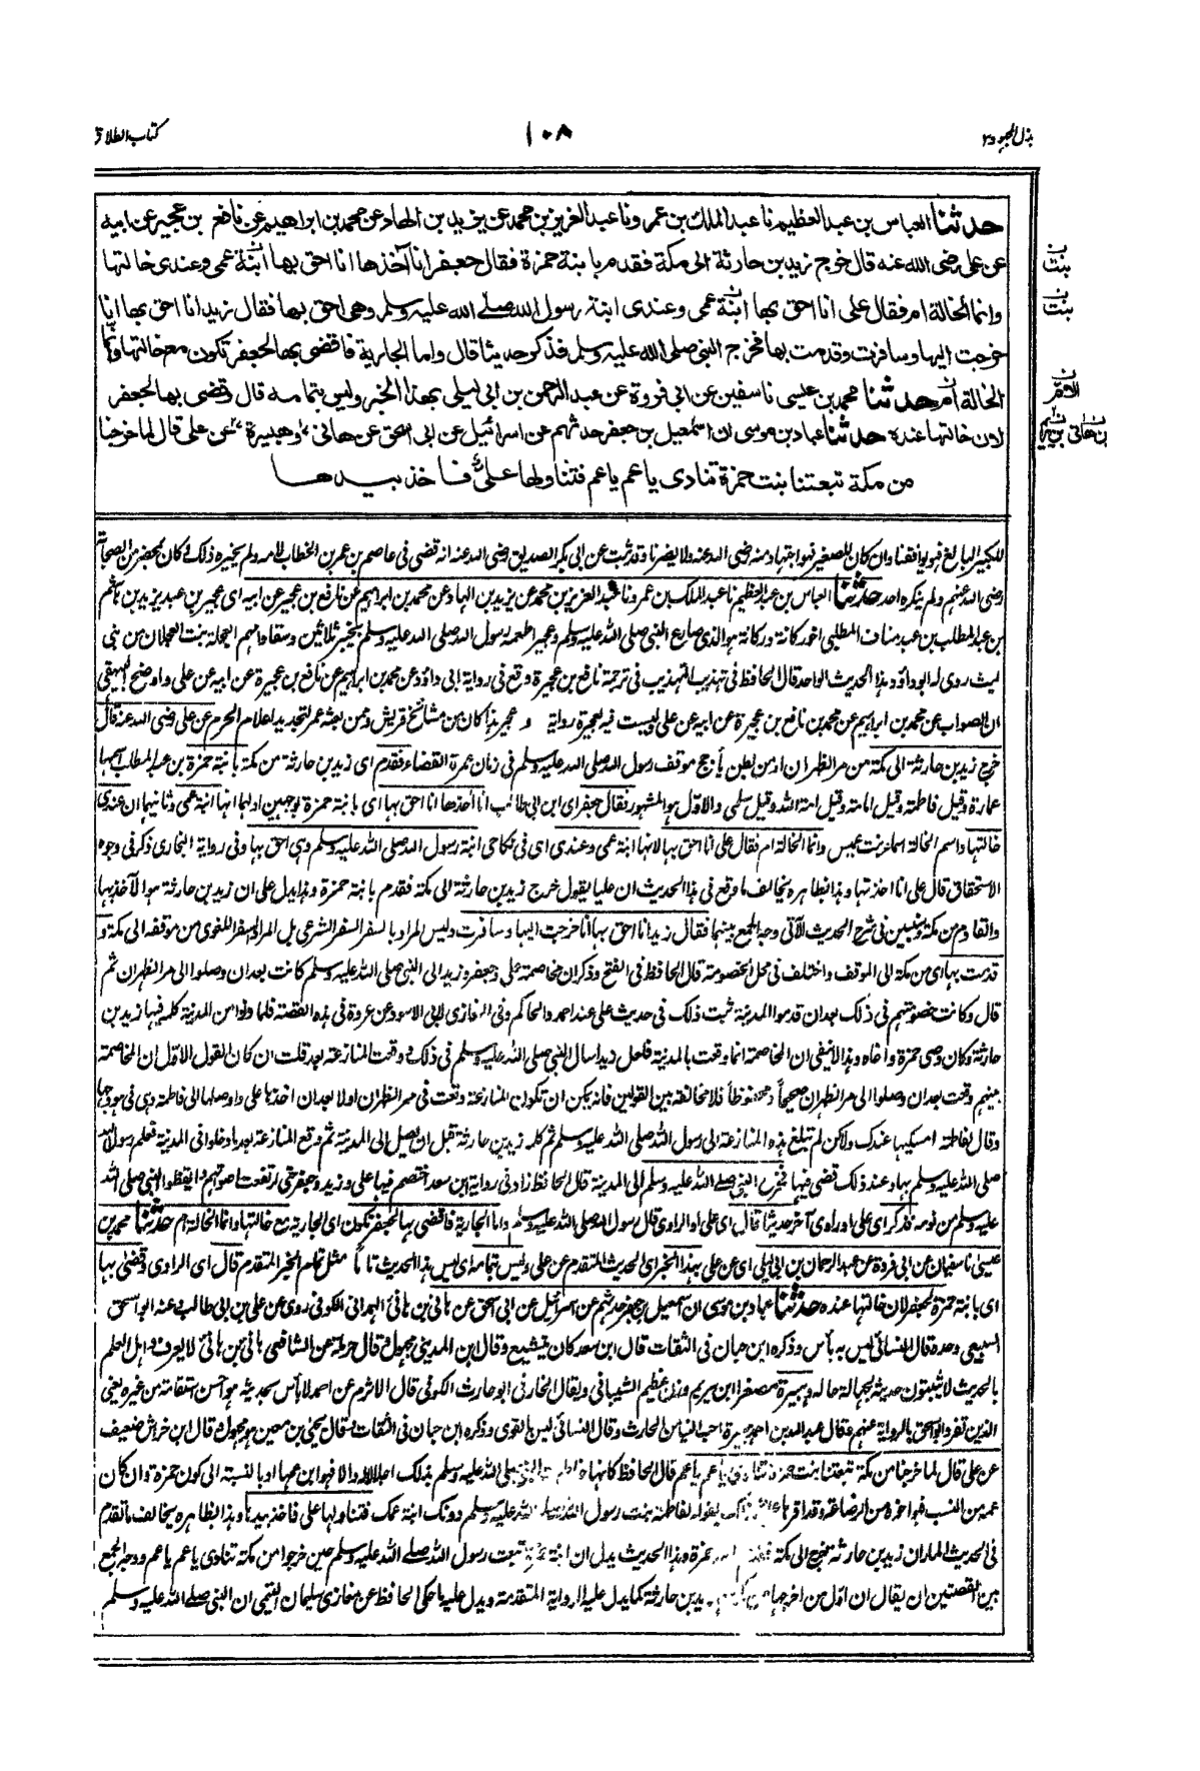 بذل المجهود ٣
١٠٨
كتاب الطلاق
حدثنا العباس بن عبد العظيم نا عبد الملك بن عمرو نا عبد العزيز بن محمد عن يزيد بن الهاد عن محمد بن ابراهيم عن نافع بن عجير عن ابيه
عن على رضى الله عنه قال خرج زيد بن حارثة الى مكة فقدم بابنة حمزة فقال جعفر انا آخذها انا احق بها ابنة عمى وعندى خالتها
وانما الخالة ام فقال على انا احق بها ابنة عمى وعندى ابنة رسول الله صلى الله عليه وسلم وهى احق بها فقال زيد انا احق بها انا
خرجت اليها وسافرت وقدمت بها فخرج النبى صلى الله عليه وسلم فذكر حديثا قال واما الجارية فاقضى بها لجعفر تكون مع خالتها وانما
الخالة ام حدثنا محمد بن عيسى نا سفين عن ابى فروة عن عبد الرحمن بن ابى ليلى بهذا الخبر وليس بتمامه قال وقضى بها لجعفر
لان خالتها عنده حدثنا عباد بن موسى ان اسمعيل بن جعفر حدثهم عن اسرائيل عن ابى اسحق عن هانئ وهبيرة عن على قال لما خرجنا
من مكة تبعتنا بنت حمزة تنادى يا عم يا عم فتناولها على فاخذ بيدها
بنت
بنت
للكبير البالغ فهو يوافقنا وان كان للصغير فهو اجتهاد منه رضى الله عنه ولا يضرنا وقد ثبت عن ابى بكر الصديق رضى الله عنه انه قضى فى عاصم بن عمر بن الخطاب لامه ولم يخيره ذلك فى كان بمحضر من الصحابة
رضى الله عنهم ولم ينكره احد حدثنا العباس بن عبد العظيم نا عبد الملك بن عمرو نا عبد العزيز بن محمد عن يزيد بن الهاد عن محمد بن ابراهيم عن نافع بن عجير عن ابيه اى عجير بن عبد يزيد بن هاشم
بن عبد المطلب بن عبد مناف المطلبى اخو ركانة وركانة هو الذى صارع النبى صلى الله عليه وسلم وعجير اطعمه رسول الله صلى الله عليه وسلم بخيبر ثلاثين وسقا وامهم العجلة بنت العجلان من بنى
ليث روى له ابو داؤد هذا الحديث الواحد قال الحافظ فى تهذيب التهذيب فى ترجمة نافع بن عجيرة وقع فى رواية ابى داؤد عن محمد بن ابراهيم عن نافع بن عجيرة عن ابيه عن على واوضح البيهقى
ان الصواب عن محمد بن ابراهيم عن محمد بن نافع بن عجيرة عن ابيه عن على وليست فيه لعجيرة رواية و عجير هذا كان من مشائخ قريش وممن بعثه عمر لتجديد اعلام الحرم عن على رضى الله عنه قال
خرج زيد بن حارثة الى مكة من مر الظهران او من بطن يأجج موقف رسول الله صلى الله عليه وسلم فى زمان عمرة القضاء فقدم اى زيد بن حارثة من مكة بابنة حمزة بن عبد المطلب اسمها
عمارة وقيل فاطمة وقيل امامة وقيل امة الله وقيل سلمى والاول هو المشهور فقال جعفر اى ابن ابى طالب انا آخذها انا احق بها اى بابنة حمزة لوجهين اولهما انها ابنة عمى وثانيهما ان عندى
خالتها واسم الخالة اسماء بنت عميس وانما الخالة ام فقال على انا احق بها لانها ابنة عمى وعندى اى فى نكاحى ابنة رسول الله صلى الله عليه وسلم وهى احق بها وفى رواية البخارى ذكر فى وجوه
الاستحقاق قال على انا اخذتها وهذا بظاهره يخالف ما وقع فى هذا الحديث ان عليا يقول خرج زيد بن حارثة الى مكة فقدم بابنة حمزة وهذا يدل على ان زيد بن حارثة هو الآخذ بها
والقادم من مكة وسنبين فى شرح الحديث الآتى وجه الجمع بينهما فقال زيد انا احق بها انا خرجت اليها وسافرت وليس المراد بالسفر السفر الشرعى بل المراد السفر اللغوى من موقفه الى مكة و
قدمت بها اى من مكة الى الموقف واختلف فى محل الخصومة قال الحافظ فى الفتح وذكر ان مخاصمة على وجعفر وزيد الى النبى صلى الله عليه وسلم كانت بعد ان وصلوا الى مر الظهران ثم
قال وكانت خصومتهم فى ذلك بعد ان قدموا المدينة ثبت ذلك فى حديث على عند احمد والحاكم وفى المغازى لابى الاسود عن عروة فى هذه القصة فلما دنوا من المدينة كلمه فيها زيد بن
حارثة وكان وصى حمزة واخاه وهذا لا ينفى ان المخاصمة انما وقعت بالمدينة فلعل زيدا سال النبى صلى الله عليه وسلم فى ذلك ووقعت المنازعة بعد قلت ان كان القول الاول ان المخاصمة
بينهم وقعت بعد ان وصلوا الى مر الظهران صحيحاً ومحفوظاً فلا مخالفة بين القولين فانه يمكن ان تكون المنازعة وقعت فى مر الظهران اولا بعد ان اخذها على واوصلها الى فاطمة وهى فى هودجها
وقال لفاطمة امسكيها عندك ولكن لم تبلغ هذه المنازعة الى رسول الله صلى الله عليه وسلم ثم كلمه زيد بن حارثة قبل ان يصل الى المدينة ثم وقع المنازعة بعد ما دخلوا فى المدينة فعلم رسول الله
صلى الله عليه وسلم بها وعند ذلك قضى فيها فخرج النبى صلى الله عليه وسلم الى المدينة قال الحافظ زاد فى رواية ابن سعد اختصم فيها على وزيد وجعفر حتى ارتفعت اصواتهم فايقظوا النبى صلى الله
عليه وسلم من نومه فذكر اى على او راوى آخر حديثا قال اى على او الراوى قال رسول الله صلى الله عليه وسلم واما الجارية فاقضى بها لجعفر تكون اى الجارية مع خالتها وانما الخالة ام حدثنا محمد بن
عيسى نا سفيان عن ابى فروة عن عبد الرحمان بن ابى ليلى اى عن على بهذا الخبر اى الحديث المتقدم عن على وليس بتمامه اى ليس هذا الحديث تاماً مثل تمام الخبر المتقدم قال اى الراوى وقضى بها
اى بابنة حمزة لجعفر لان خالتها عنده حدثنا عباد بن موسى ان اسمعيل بن جعفر حدثهم عن اسرائيل عن ابى اسحق عن هانئ بن هانئ الهمدانى الكوفى روى عن على بن ابى طالب وعنه ابو اسحق
السبيعى وحده قال النسائى ليس به بأس وذكره ابن حبان فى الثقات قال ابن سعد كان يتشيع وقال ابن المدينى مجهول وقال حرملة عن الشافعى هانئ بن هانئ لا يعرف واهل العلم
بالحديث لا يثبتون حديثه لجهالة حاله وهبيرة مصغرا ابن يريم وزن عظيم الشيبانى ويقال الخارفى ابو حارث الكوفى قال الاثرم عن احمد لا بأس بحديثه هو احسن استقامة من غيره يعنى
الذين تفرد ابو اسحق بالرواية عنهم وقال عبد الله بن احمد هبيرة احب الينا من الحارث وقال النسائى ليس بالقوى وذكره ابن حبان فى الثقات وقال يحيى بن معين هو مجهول وقال ابن خراش ضعيف
عن على قال لما خرجنا من مكة تبعتنا بنت حمزة تنادى يا عم يا عم قال الحافظ كانها خاطبت النبى صلى الله عليه وسلم بذلك اجلالا له والا فهو ابن عمها او بالنسبة الى كون حمزة وان كان
عمه من النسب فهو اخوه من الرضاعة وقد اقرها على ذلك بقوله لفاطمة بنت رسول الله صلى الله عليه وسلم دونك ابنة عمك فتناولها على فاخذ بيدها وهذا بظاهره يخالف ما تقدم
فى الحديث المار ان زيد بن حارثة خرج الى مكة فقدم بابنة حمزة وهذا الحديث يدل ان ابنة حمزة تبعت رسول الله صلى الله عليه وسلم حين خرجوا من مكة تنادى يا عم يا عم ووجه الجمع
بين القصتين ان يقال ان اول من اخرجها من مكة زيد بن حارثة كما يدل عليه الرواية المتقدمة ويدل عليه ما حكى الحافظ عن مغازى سليمان التيمى ان النبى صلى الله عليه وسلم